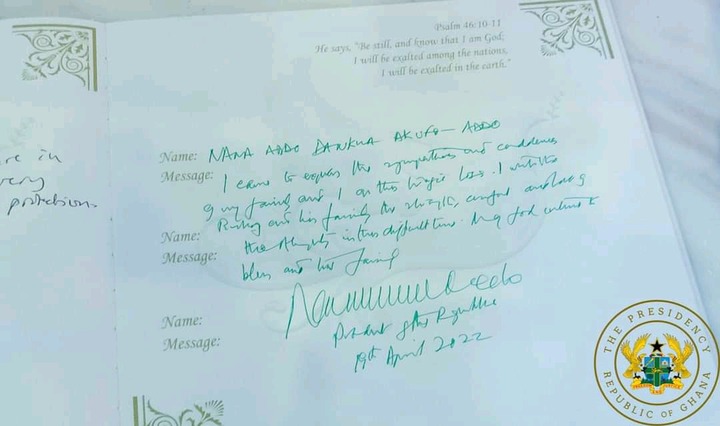 Psalm 46:10-11
He says, "Be still, and know that I am God;
I will be exalted among the nations,
I will be exalted in the earth."
re in
very
protection.
Name: NANA ADDO DANKWA AKUFO-ADDO
Message: I came to express the sympathies and condolences
of my family and I on this tragic loss. I wish the
and his family the strength, comfort and
Name:
the Almighty in this difficult time. May God continue to
Message: bless and his family
Name: President of the Republic
Message: 19th April 2022
THE PRESIDENCY
REPUBLIC OF GHANA